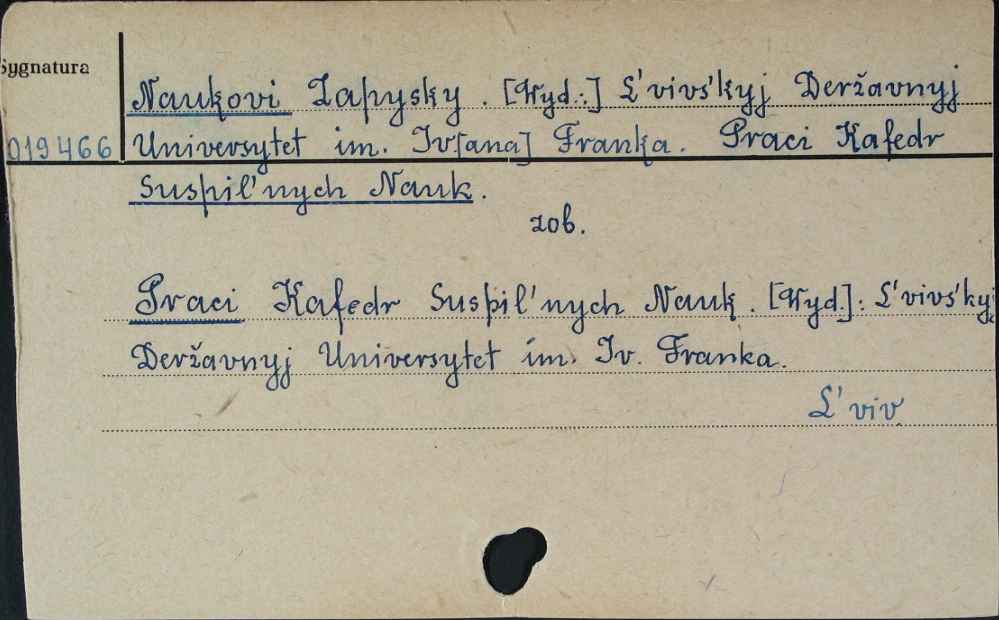 Sygnatura
Naukovi Zapysky. [Wyd.:] L'vivs'kyj Deržavnyj
019466 Universytet im. Iv[ana] Franka. Praci Kafedr
Suspil'nych Nauk.
zob.
Praci Kafedr Suspil'nych Nauk. [Wyd]: L'vivs'kyj
Deržavnyj Universytet im. Iv. Franka.
L'viv